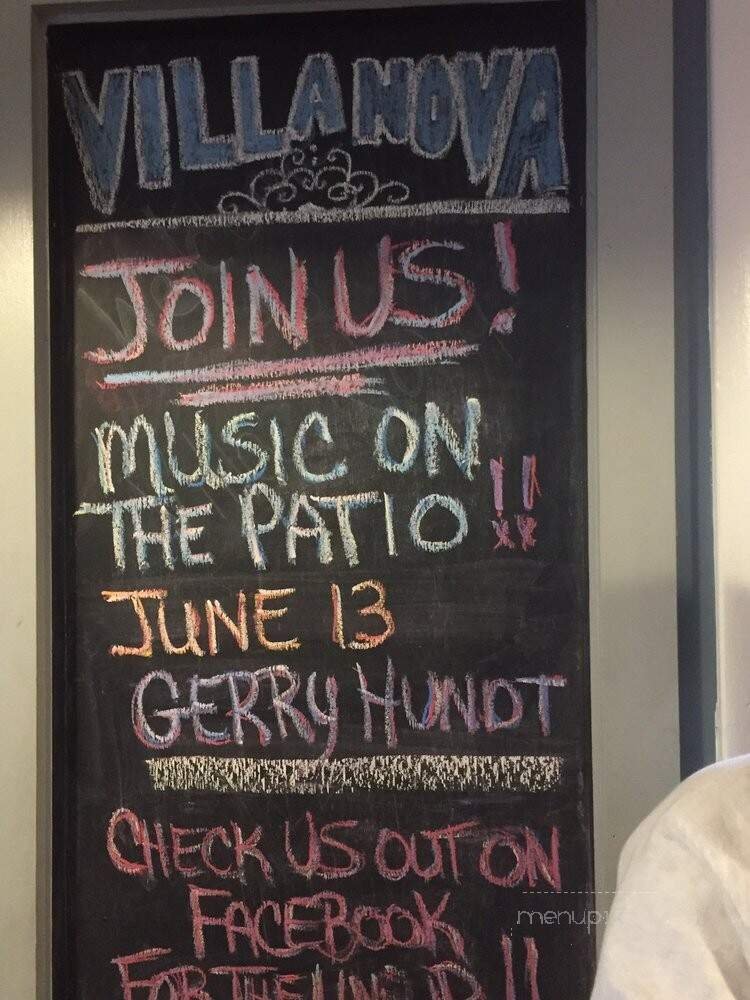 VILLA NOVA
JOIN US!
MUSIC ON
THE PATIO !!
JUNE 13
GERRY HUNDT
CHECK US OUT ON
FACEBOOK
FOR THE LINE UP !!